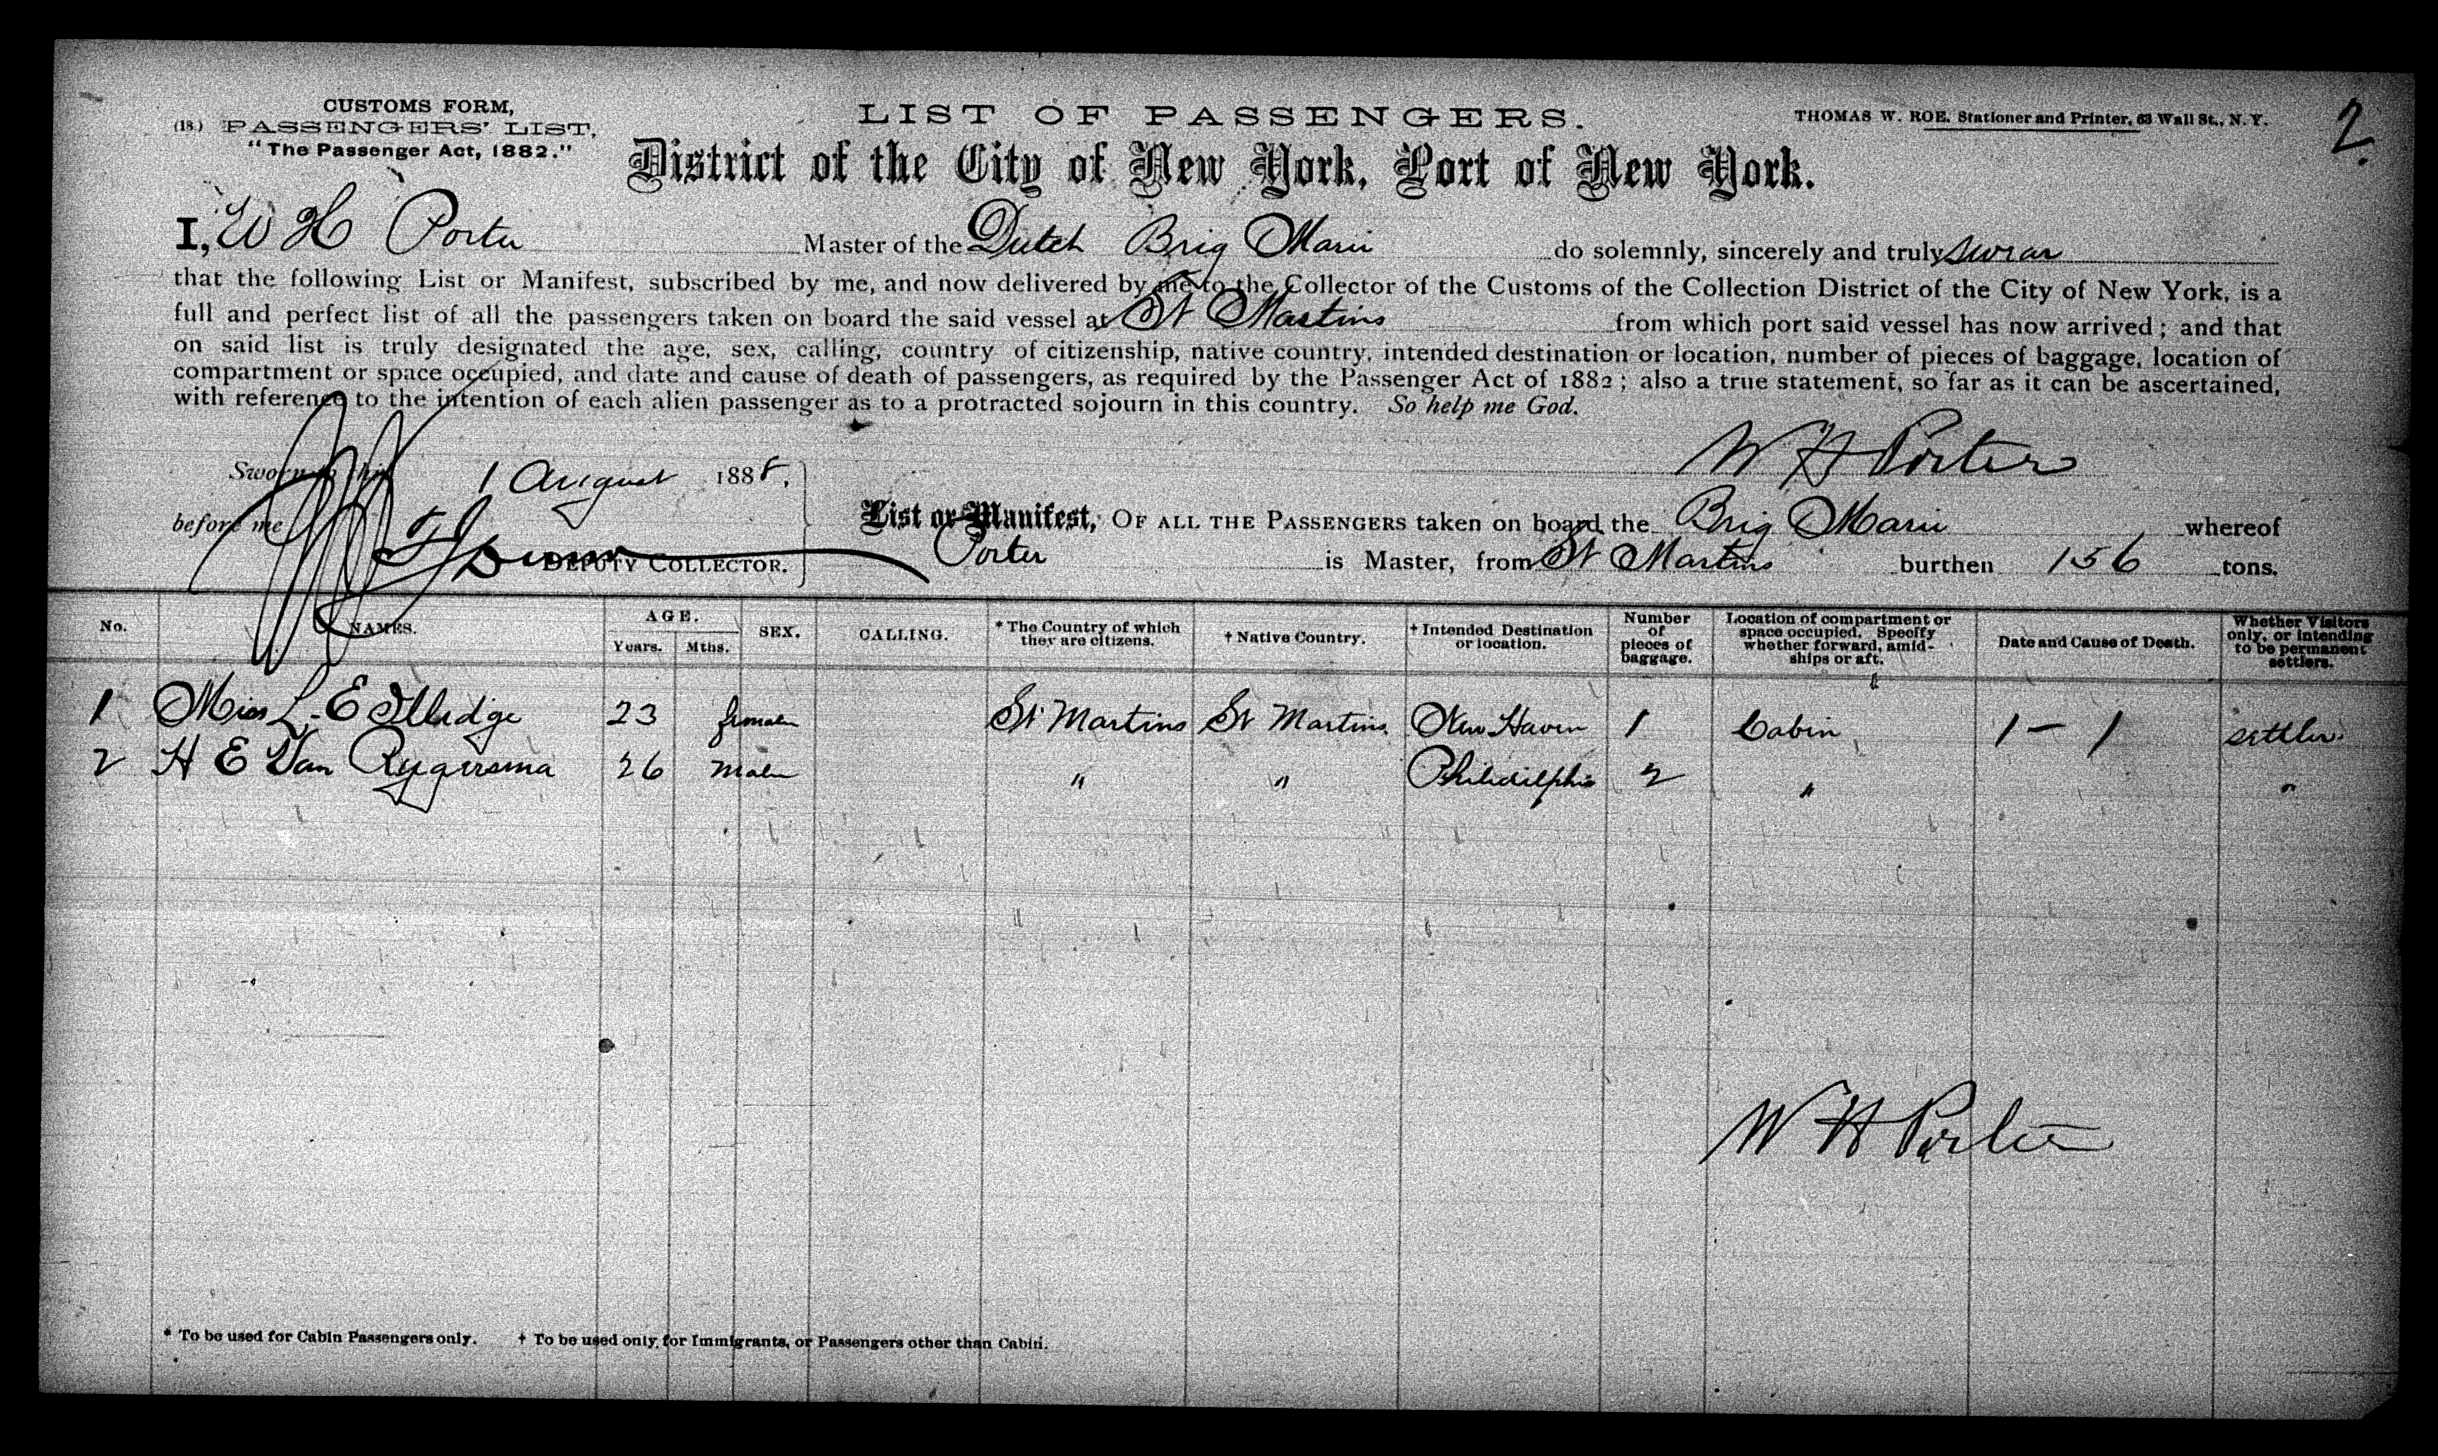 CUSTOMS FORM,
(18.) PASSENGERS' LIST,
"The Passenger Act, 1882."
LIST OF PASSENGERS.
THOMAS W. ROE, Stationer and Printer, 63 Wall St., N.Y.
2.
District of the City of New York, Port of New York.
I, W H Porter Master of the Dutch Brig Marie do solemnly, sincerely and truly swear
that the following List or Manifest, subscribed by me, and now delivered by me to the Collector of the Customs of the Collection District of the City of New York, is a
full and perfect list of all the passengers taken on board the said vessel at St Martins from which port said vessel has now arrived; and that
on said list is truly designated the age, sex, calling, country of citizenship, native country, intended destination or location, number of pieces of baggage, location of
compartment or space occupied, and date and cause of death of passengers, as required by the Passenger Act of 1882; also a true statement, so far as it can be ascertained,
with reference to the intention of each alien passenger as to a protracted sojourn in this country. So help me God.
W H Porter
Sworn to this 1 August 1888,
before me
DEPUTY COLLECTOR.
List or Manifest, OF ALL THE PASSENGERS taken on board the Brig Marie whereof
Porter is Master, from St Martins burthen 156 tons.
No. NAMES. AGE. Years. Mths. SEX. CALLING. * The Country of which they are citizens. † Native Country. † Intended Destination or location. Number of pieces of baggage. Location of compartment or space occupied. Specify whether forward, amidships or aft. Date and Cause of Death. Whether Visitors only, or intending to be permanent settlers.
1 Miss L. E Illidge 23 female St Martins St Martins New Haven 1 Cabin 1 - 1 settler
2 H E Van 26 Male " " Philidelphia 2 " "
W H Porter
* To be used for Cabin Passengers only. † To be used only for Immigrants, or Passengers other than Cabin.